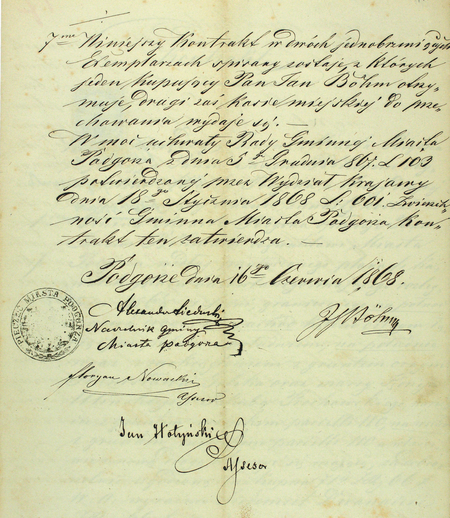 7me Niniejszy Kontrakt w dwóch jednobrzmiących
Exemplarzach spisany zostaje, z których
jeden kupujący Pan Jan Böhm otrzy-
muje, drugi zaś kasie miejskiej do prze-
chowania wydaje się. —
W moc uchwały Rady Gminnej Miasta
Podgórza z dnia 5 Grudnia 867. L 103
potwierdzonej przez Wydział krajowy
dnia 18go Stycznia 1868 L: 601. Zwierzch-
ność Gminna Miasta Podgórza Kon-
trakt ten zatwierdza. —
Podgórze dnia 16go Czerwca 1868.
PIECZĘĆ MIASTA PODGÓRZA
Alexander
Naczelnik gminy
Miasta podgórza
Böhm
Floryan Nowacki
Jan Wołyński
Asesor